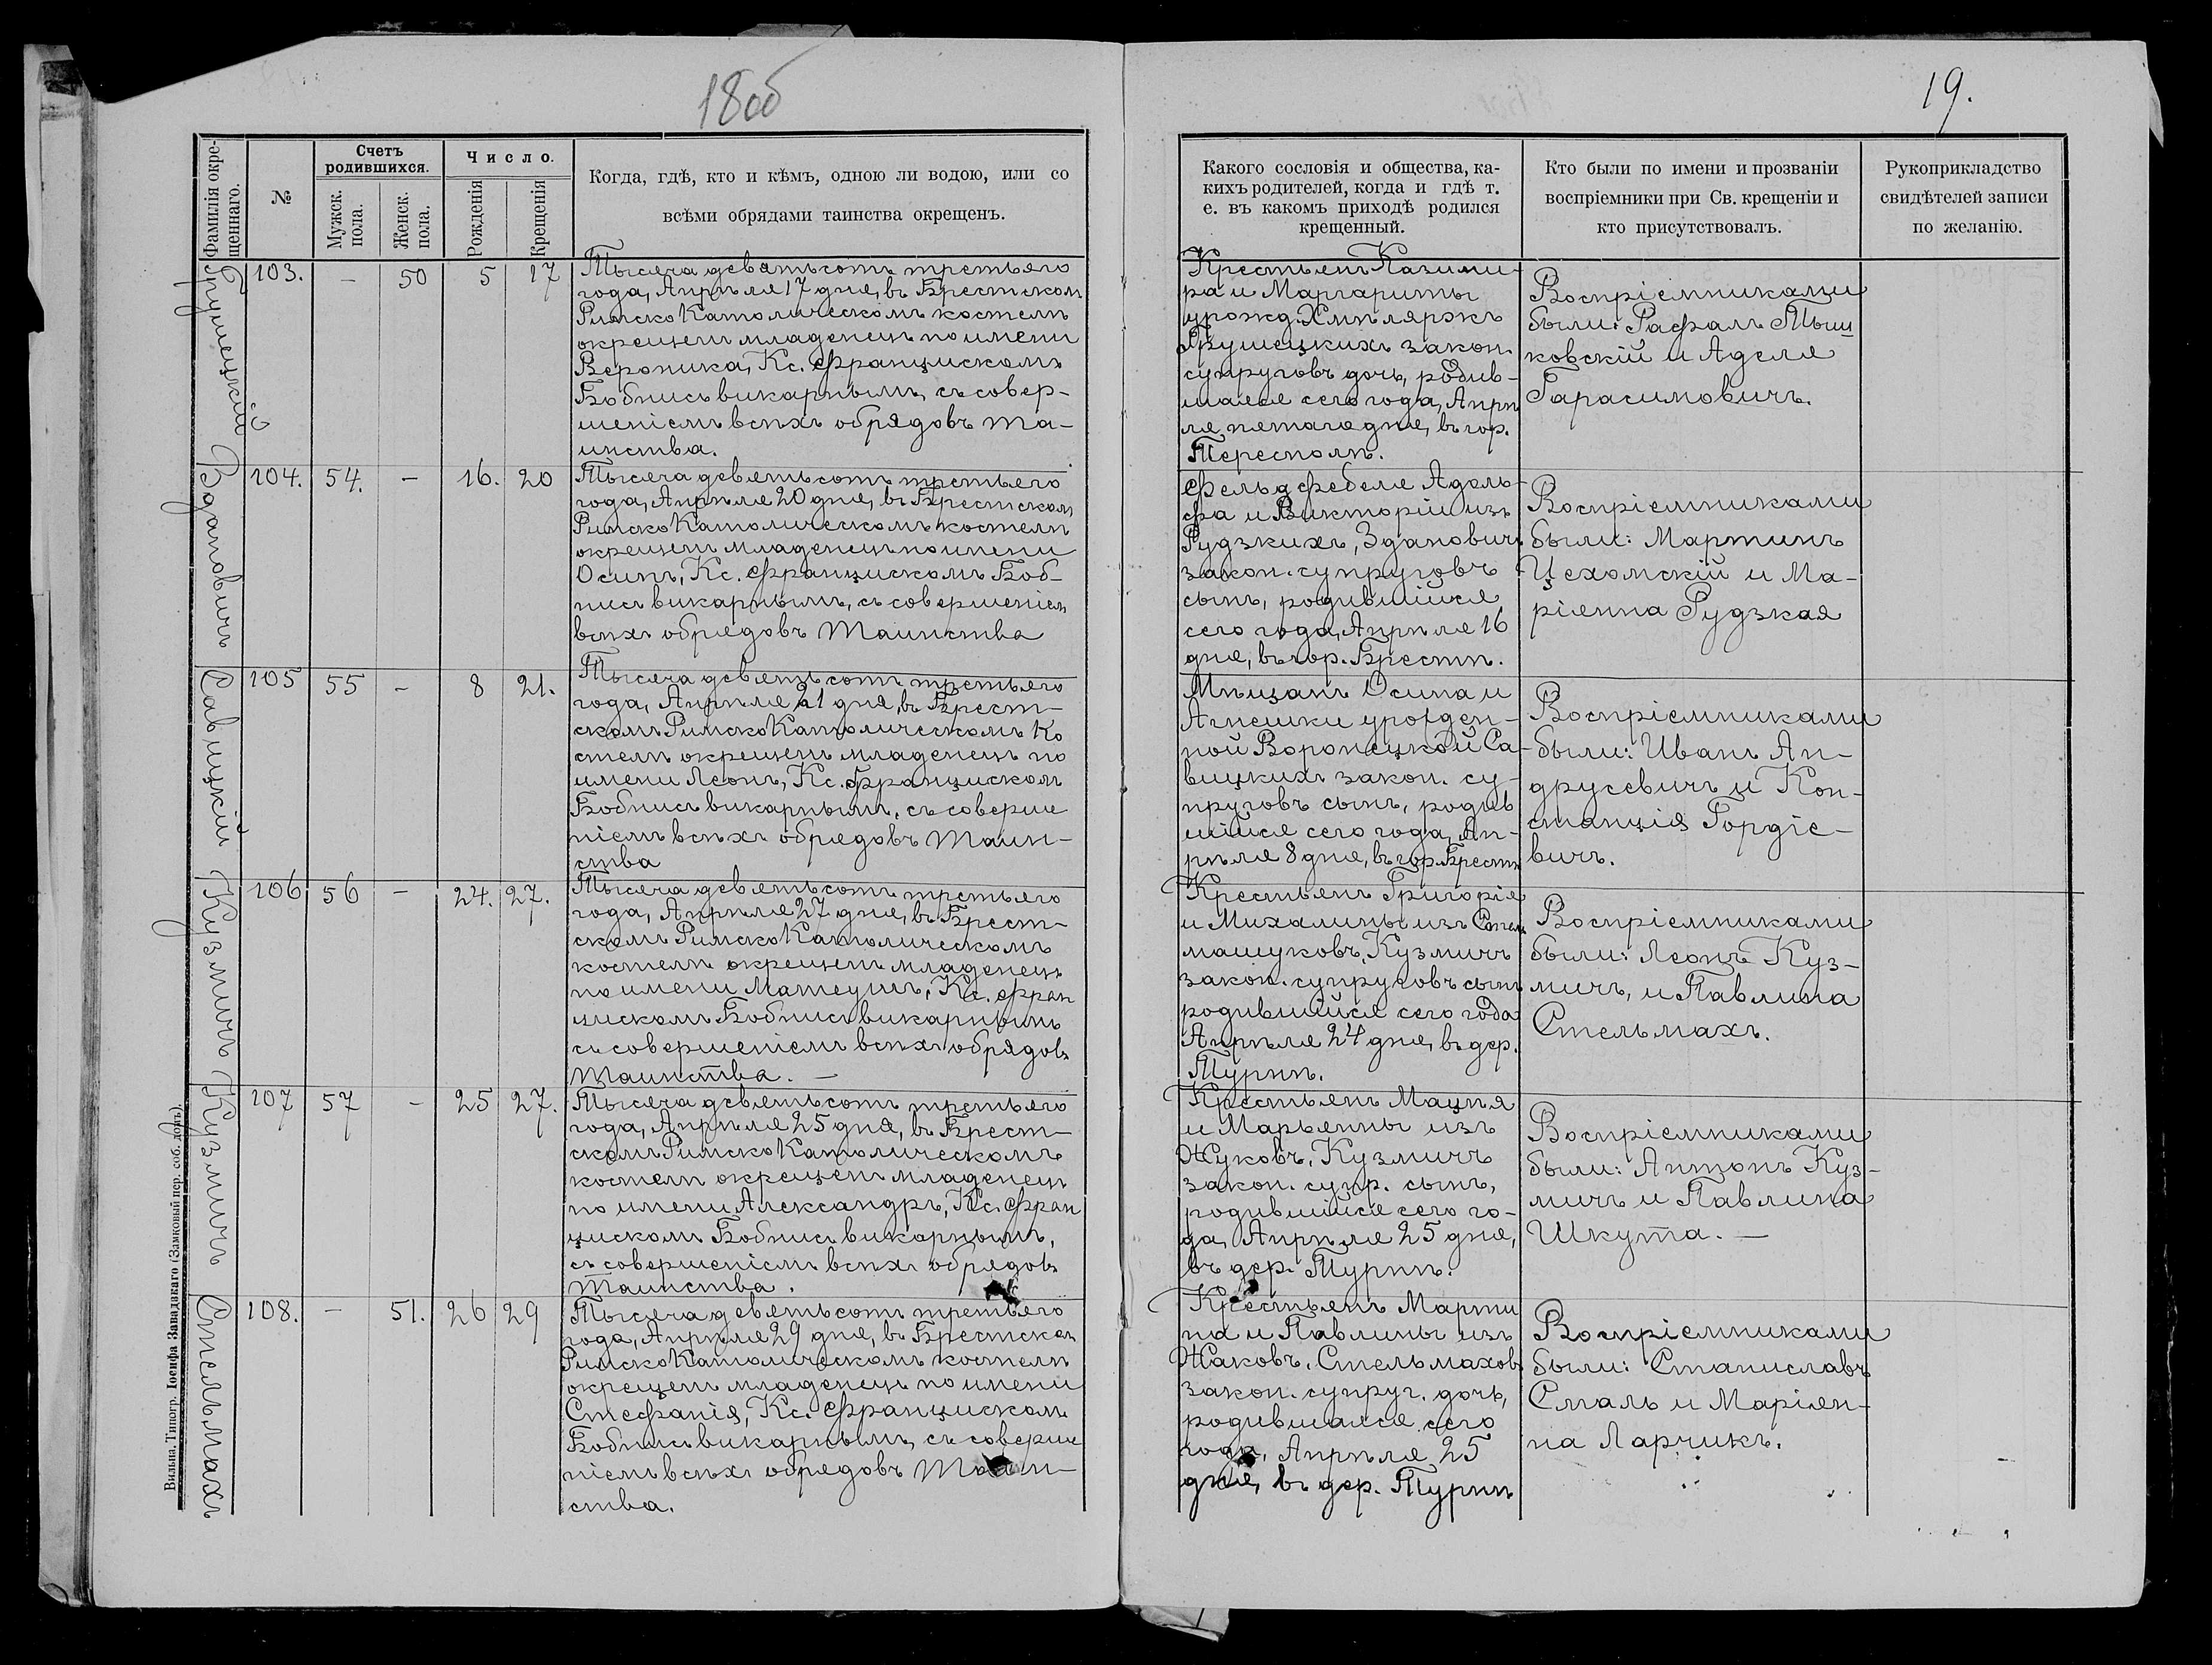 18об
19.
Фамилія окре-
щеннаго.
№
Счетъ
родившихся.
Мужск.
пола.
Женск.
пола.
Число.
Рожденія
Крещенія
Когда, гдѣ, кто и кѣмъ, одною ли водою, или со
всѣми обрядами таинства окрещенъ.
Какого сословія и общества, ка-
кихъ родителей, когда и гдѣ т.
е. въ какомъ приходѣ родился
крещенный.
Кто были по имени и прозваніи
воспріемники при Св. крещеніи и
кто присутствовалъ.
Рукоприкладство
свидѣтелей записи
по желанію.
Грушецкій
103. — 50 5 17
Тысяча девятьсотъ третьяго
года, Апрѣля 17 дня, въ Брестскомъ
РимскоКатолическомъ костелѣ
окрещенъ младенецъ по имени
Вероника, Кс. Францискомъ
Бобнисъ викарнымъ, съ совер-
шеніемъ всѣхъ обрядовъ та-
инства.
Крестьянъ Казими-
ра и Маргариты
урожд. Хмѣляржъ
Грушецкихъ закон.
супруговъ дочь, родив-
шаяся сего года, Апрѣ
ля пятаго дня, въ гор.
Тересполѣ.
Воспріемниками
были: Рафалъ Мыш
ковскій и Аделя
Гарасимовичъ.
Здановичъ
104. 54. — 16. 20
Тысяча девятьсотъ третьяго
года, Апрѣля 20 дня, въ Брестскомъ
РимскоКатолическомъ костелѣ
окрещенъ младенецъ по имени
Осипъ, Кс. Францискомъ Боб-
нисъ викарнымъ, съ совершеніем
всѣхъ обрядовъ Таинства
Фельдфебеля Адоль-
фа и Викторіи изъ
Рудзкихъ, Здановичъ
закон. супруговъ
сынъ, родившійся
сего года, Апрѣля 16
дня, въ гор. Брестѣ.
Воспріемниками
были: Мартинъ
Цехомскій и Ма-
ріянна Рудзкая
Савицкій
105 55 - 8 21.
Тысяча девятьсотъ третьяго
года, Апрѣля 21 дня, въ Брест-
скомъ РимскоКатолическомъ Ко
стелѣ окрещенъ младенецъ по
имени Леонъ, Кс. Францискомъ
Бобнисъ викарнымъ, съ соверше
ніемъ всѣхъ обрядовъ Таин-
ства
Мѣщанъ Осипа и
Агнешки урожден-
ной Воронецкой Са-
вицкихъ закон. су-
пруговъ сынъ, родив
шійся сего года, Ап-
рѣля 8 дня, въ гор. Брестѣ
Воспріемниками
были: Иванъ Ан-
друсевичъ и Кон-
станція Гордіе-
вичъ.
Кузмичъ
106 56 - 24. 27.
Тысяча девятьсотъ третьяго
года, Апрѣля 27 дня, въ Брест-
скомъ РимскоКатолическомъ
костелѣ окрещенъ младенецъ
по имени Матеушъ, Кс. Фран
цискомъ Бобнисъ викарнымъ
съ совершеніемъ всѣхъ обрядовъ
Таинства. —
Крестьянъ Григорія
и Михалины изъ Стель
машуковъ, Кузмичъ
закон. супруговъ сынъ
родившійся сего года
Апрѣля 24 дня, въ дер.
Турнѣ.
Воспріемниками
были: Леонъ Куз-
мичъ, и Павлина
Стельмахъ.
Кузмичъ
107 57 - 25 27.
Тысяча девятьсотъ третьяго
года, Апрѣля 25 дня, въ Брест-
скомъ РимскоКатолическомъ
костелѣ окрещенъ младенецъ
по имени Александръ, Кс. Фран
цискомъ Бобнисъ викарнымъ,
съ совершеніемъ всѣхъ обрядовъ
Таинства.
Крестьянъ Мацѣя
и Марьянны изъ
Жуковъ, Кузмичъ
закон. супр. сынъ,
родившійся сего го-
да, Апрѣля 25 дня,
въ дер. Турнѣ.
Воспріемниками
были: Антонъ Куз-
мичъ и Павлина
Шкута. —
Стельмахъ
108. — 51. 26 29
Тысяча девятьсотъ третьяго
года, Апрѣля 29 дня, въ Брестскомъ
РимскоКатолическомъ костелѣ
окрещенъ младенецъ по имени
Стефанія, Кс. Францискомъ
Бобнисъ викарнымъ, съ соверше
ніемъ всѣхъ обрядовъ Таин-
ства.
Крестьянъ Марти
на и Павлины изъ
Жаковъ, Стельмаховъ
закон. супруг. дочь,
родившаяся сего
года, Апрѣля 25
дня, въ дер. Турнѣ
Воспріемниками
были: Станиславъ
Сталь и Маріян-
на Ларчикъ.
Вильна. Типогр. Іосифа Завадзкаго (Замковый пер. соб. домъ).